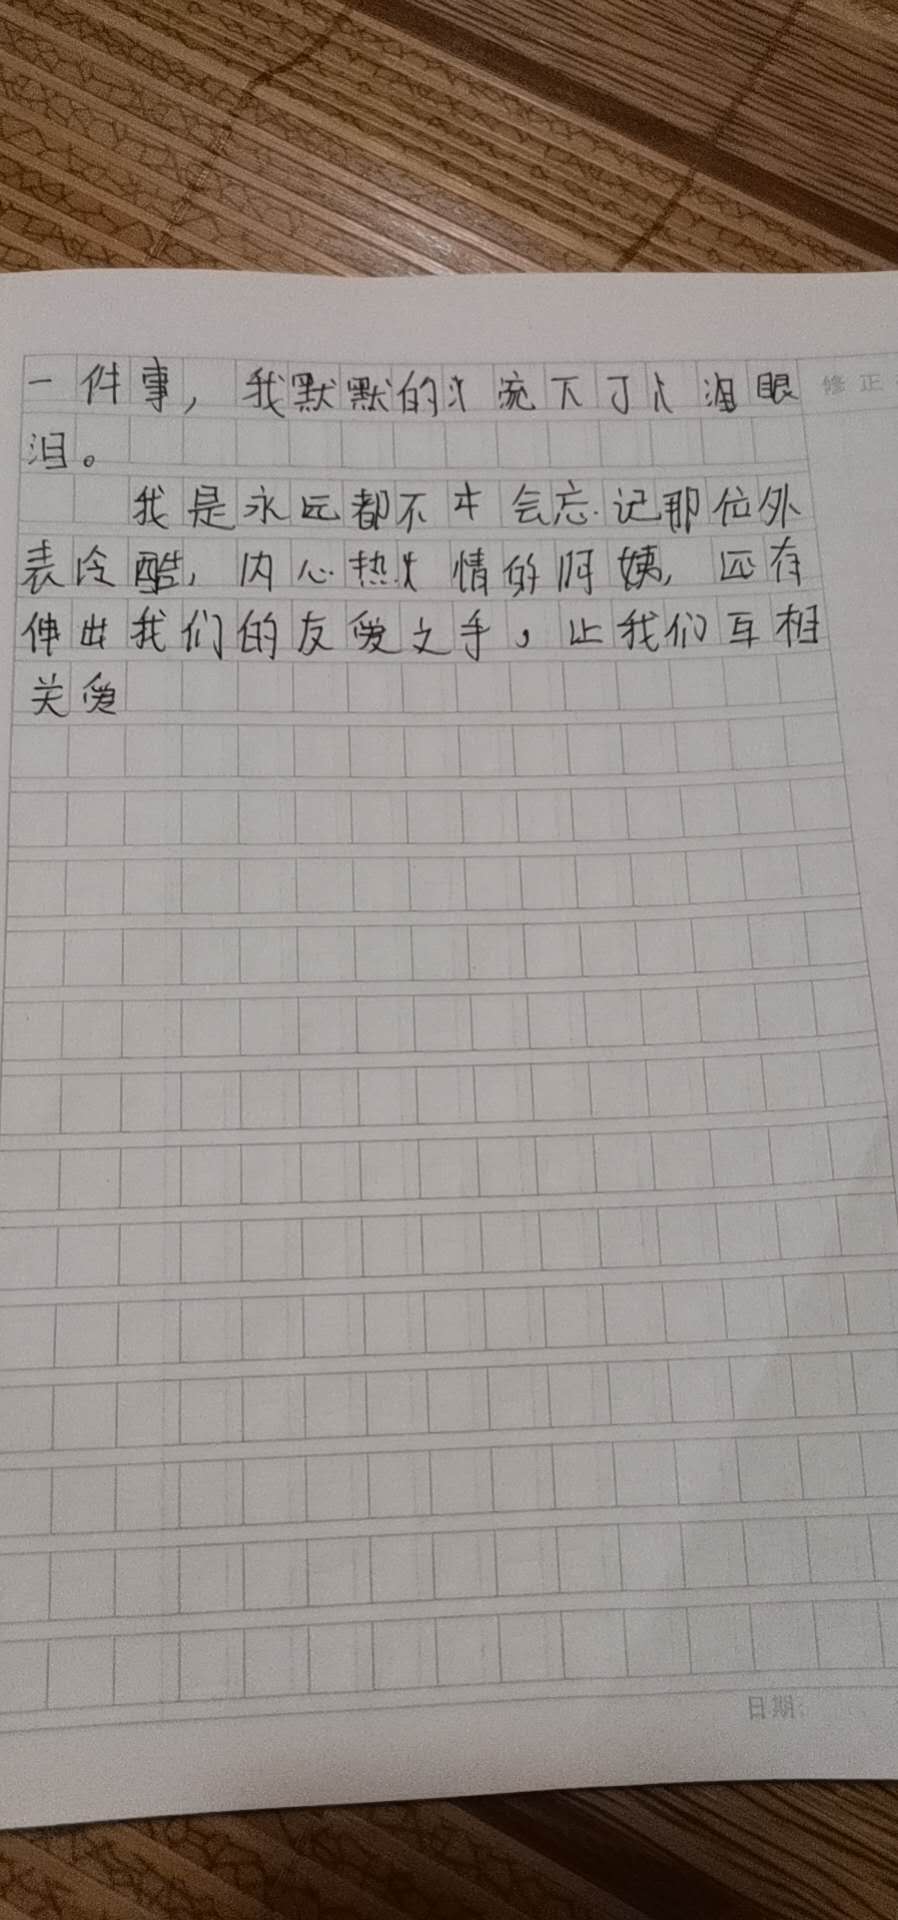 一件事，我默默的流下了眼 修正
泪。
我是永远都不会忘记那位外
表冷酷，内心热情的阿姨，还有
伸出我们的友爱之手，让我们互相
关爱
日期：